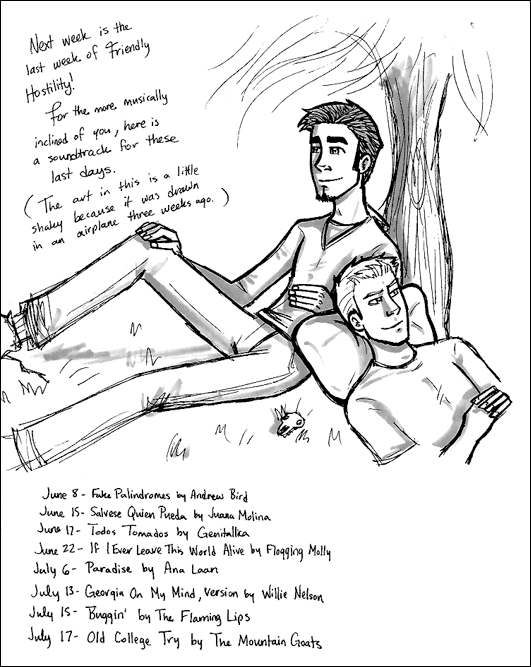 Next week is the
last week of Friendly
Hostility!
For the more musically
inclined of you, here is
a soundtrack for these
last days.
(The art in this is a little
shaky because it was drawn
in an airplane three weeks ago.)
June 8 - Fake Palindromes by Andrew Bird
June 15 - Salvese Quien Pueda by Juana Molina
June 17 - Todos Tomados by Genitallica
June 22 - If I Ever Leave This World Alive by Flogging Molly
July 6 - Paradise by Ana Laan
July 13 - Georgia On My Mind, version by Willie Nelson
July 15 - Buggin' by The Flaming Lips
July 17 - Old College Try by The Mountain Goats